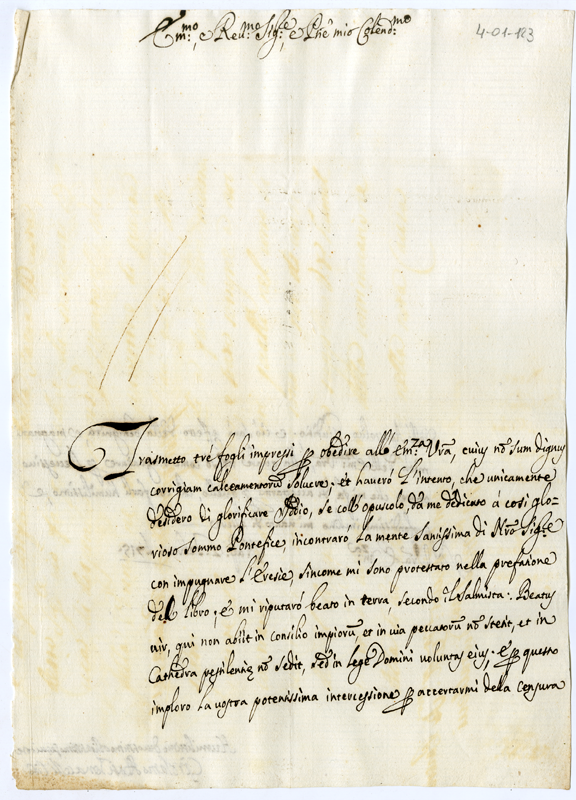 Em.mo, e Reu.mo Sig.re, e Pñe mio Colend.mo
4-01-123
Trasmetto tré fogli impressi p obedire all' Em.za Vrã, cuius nõ sum dignus
corrigiam calceamentorũ soluere; et haverò l'intento, che unicamente
desidero di glorificare Iddio, se coll'opuscolo, da me dedicato á cosi glo-
rioso Sommo Pontefice, incontrarò la mente Sanissima di Nrõ Sig.re
con impugnare l'Eresie, sincome mi sono protestato nella prefazione
del libro, e mi riputarò beato in terra, secondo il Salmista: Beatus
vir, qui non abijt in consilio impiorũ, et in via peccatorũ nõ stetit, et in
Cathedra pestilentiæ nõ sedit, sed in lege Domini voluntas eius; E p questo
imploro la vostra potenissima intercessione p accertarmi della censura